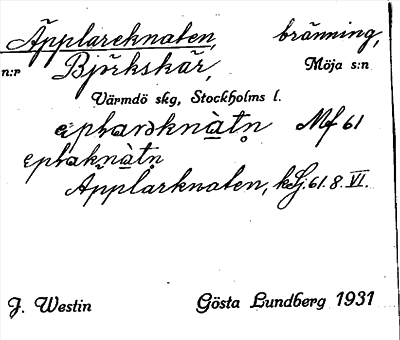 Äpplareknaten, bränning,
n:r Björkskär, Möja s:n
Värmdö skg, Stockholms l.
Mf 61
Äpplarknaten, kSj. 61. 8. VI.
J. Westin Gösta Lundberg 1931